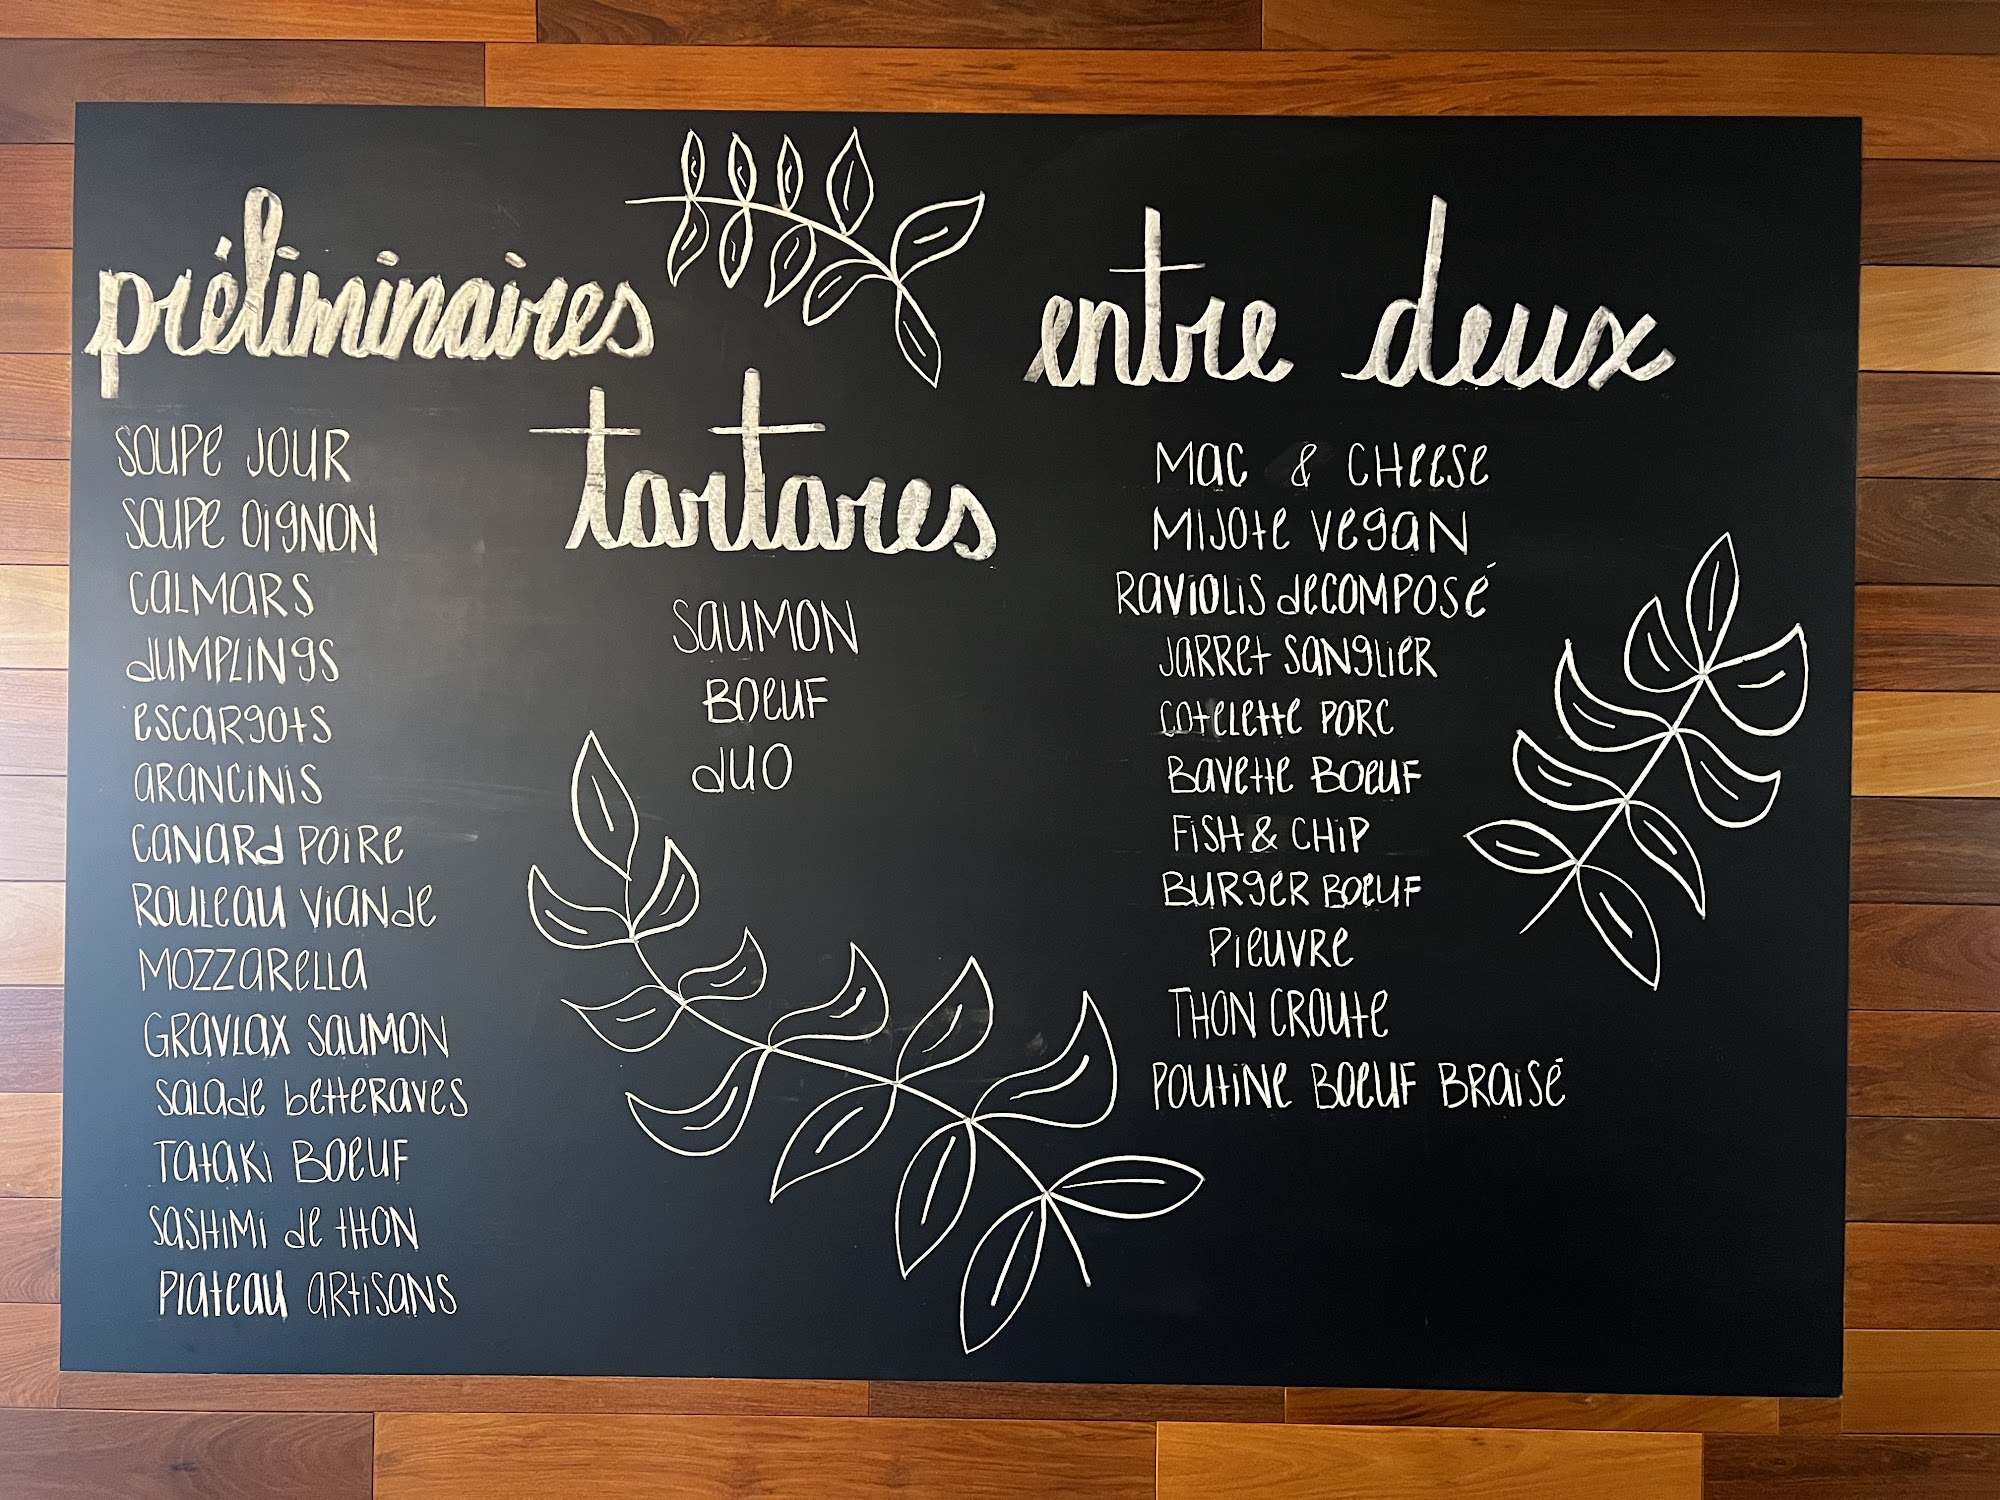 préliminaires
SOUPE JOUR
SOUPE OIGNON
CALMARS
DUMPLINGS
ESCARGOTS
ARANCINIS
CANARD POIRE
ROULEAU VIANDE
MOZZARELLA
GRAVLAX SAUMON
SALADE BETTERAVES
TATAKI BOEUF
SASHIMI DE THON
PLATEAU ARTISANS
tartares
SAUMON
BOEUF
DUO
entre deux
MAC & CHEESE
MIJOTE VEGAN
RAVIOLIS DECOMPOSÉ
JARRET SANGLIER
COTELETTE PORC
BAVETTE BOEUF
FISH & CHIP
BURGER BOEUF
PIEUVRE
THON CROUTE
POUTINE BOEUF BRAISÉ